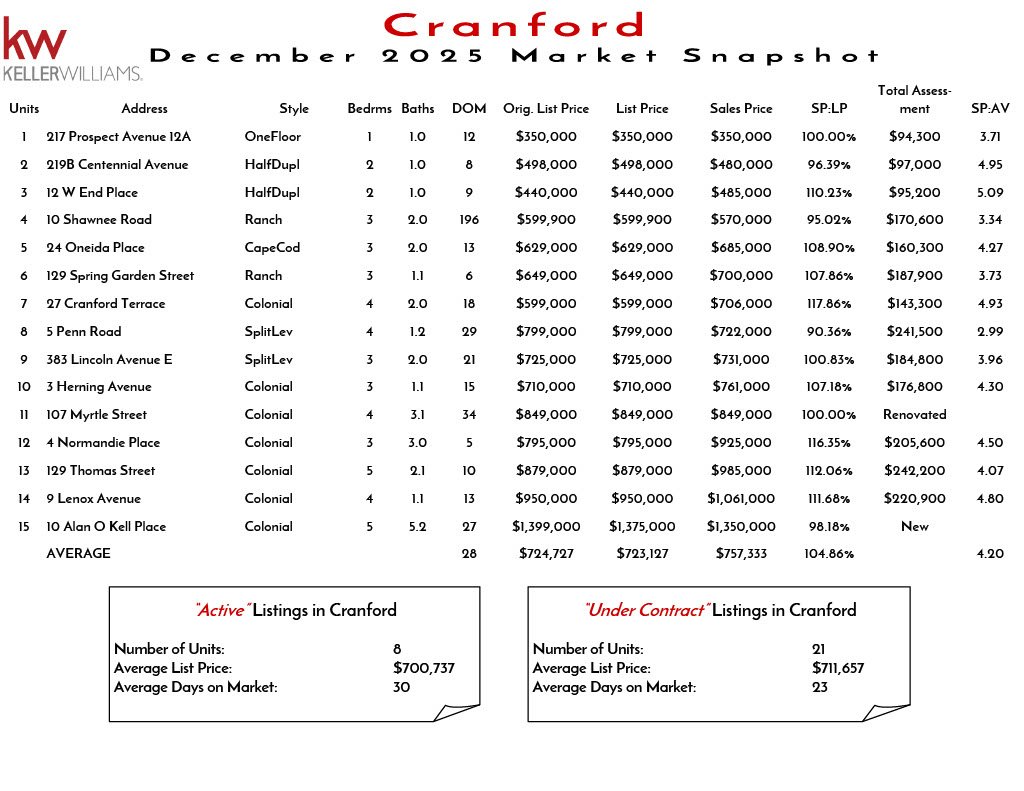 Cranford
kw
KELLERWILLIAMS.
December 2025 Market Snapshot
Units Address Style Bedrms Baths DOM Orig. List Price List Price Sales Price SP:LP Total Assess-ment SP:AV
1 217 Prospect Avenue 12A OneFloor 1 1.0 12 $350,000 $350,000 $350,000 100.00% $94,300 3.71
2 219B Centennial Avenue HalfDupl 2 1.0 8 $498,000 $498,000 $480,000 96.39% $97,000 4.95
3 12 W End Place HalfDupl 2 1.0 9 $440,000 $440,000 $485,000 110.23% $95,200 5.09
4 10 Shawnee Road Ranch 3 2.0 196 $599,900 $599,900 $570,000 95.02% $170,600 3.34
5 24 Oneida Place CapeCod 3 2.0 13 $629,000 $629,000 $685,000 108.90% $160,300 4.27
6 129 Spring Garden Street Ranch 3 1.1 6 $649,000 $649,000 $700,000 107.86% $187,900 3.73
7 27 Cranford Terrace Colonial 4 2.0 18 $599,000 $599,000 $706,000 117.86% $143,300 4.93
8 5 Penn Road SplitLev 4 1.2 29 $799,000 $799,000 $722,000 90.36% $241,500 2.99
9 383 Lincoln Avenue E SplitLev 3 2.0 21 $725,000 $725,000 $731,000 100.83% $184,800 3.96
10 3 Herning Avenue Colonial 3 1.1 15 $710,000 $710,000 $761,000 107.18% $176,800 4.30
11 107 Myrtle Street Colonial 4 3.1 34 $849,000 $849,000 $849,000 100.00% Renovated
12 4 Normandie Place Colonial 3 3.0 5 $795,000 $795,000 $925,000 116.35% $205,600 4.50
13 129 Thomas Street Colonial 5 2.1 10 $879,000 $879,000 $985,000 112.06% $242,200 4.07
14 9 Lenox Avenue Colonial 4 1.1 13 $950,000 $950,000 $1,061,000 111.68% $220,900 4.80
15 10 Alan O Kell Place Colonial 5 5.2 27 $1,399,000 $1,375,000 $1,350,000 98.18% New
AVERAGE 28 $724,727 $723,127 $757,333 104.86% 4.20
"Active" Listings in Cranford
Number of Units: 8
Average List Price: $700,737
Average Days on Market: 30
"Under Contract" Listings in Cranford
Number of Units: 21
Average List Price: $711,657
Average Days on Market: 23